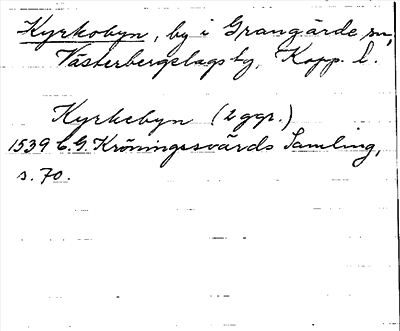 Kyrkobyn, by i Grangärde sn,
Västerbergslags tg, Kopp. l.
Kyrkebyn (2 ggr.)
1539 C.G. Kröningssvärds Samling,
s. 70.